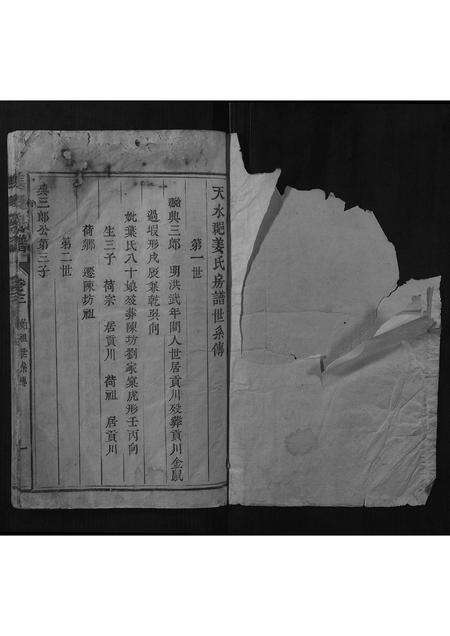 天水郡姜氏房譜世系傳
第一世
興三郎 明洪武年間人世居貢川歿葬貢川金鼠
過堠形戌辰兼乾巽向
妣葉氏八十娘歿葬陳坊劉家窠虎形壬丙向
生三子 荷宗 居貢川 荷祖 居貢川
荷鄉 遷陳坊祖
第二世
興三郎公第三子
荷祖世系傳
一